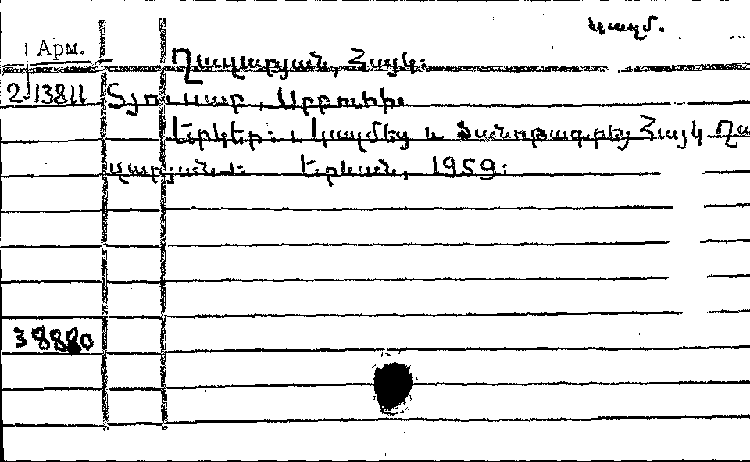 կազմ.
Арм.
Ղազարյան, Հայկ:
2-13811 Տյուսար, Սրբուհի.
Երկեր: Կազմեց և ծանոթագրեց Հայկ Ղա
զարյան: Երևան, 1959:
38880